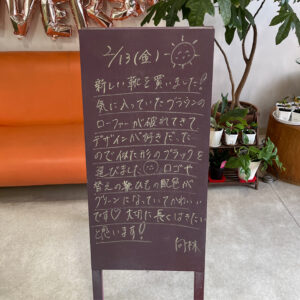 2/13(金)
新しい靴を買いました!
気に入っていたブラウンの
ローファーが破れてきて
デザインが好きだった
ので似たかのブラックを
選びました ロゴや
替えの靴ひもの配色が
グリーンになっていてかわいい
です♡ 大切に長くはきたい
と思います!